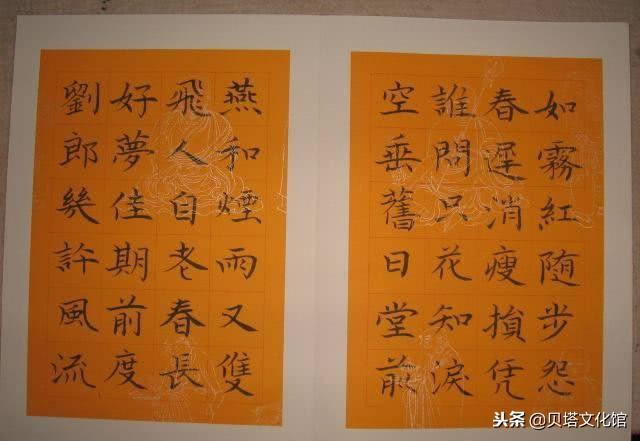 如霧紅随步怨
春遲消瘦損凭
誰問只花知淚
空垂舊日堂前
燕和煙雨又雙
飛人自老春長
好夢佳期前度
劉郎幾許風流
头条 @贝塔文化馆